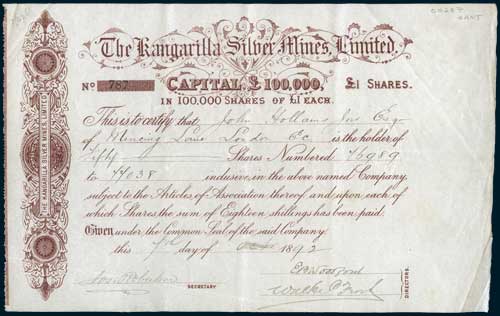 The Kangarilla Silver Mines, Limited.
No 787 CAPITAL, £100,000, £1 SHARES.
IN 100,000 SHARES OF £1 EACH.
This is to certify that John Hollams Esqr
of Mincing Lane London Ec is the holder of
Fifty Shares Numbered
to inclusive, in the above named Company,
subject to the Articles of Association thereof and upon each of
which Shares the sum of Eighteen shillings has been paid.
Given under the Common Seal of the said Company
this day of 1892
SECRETARY
DIRECTORS.
THE KANGARILLA SILVER MINES, LIMITED.